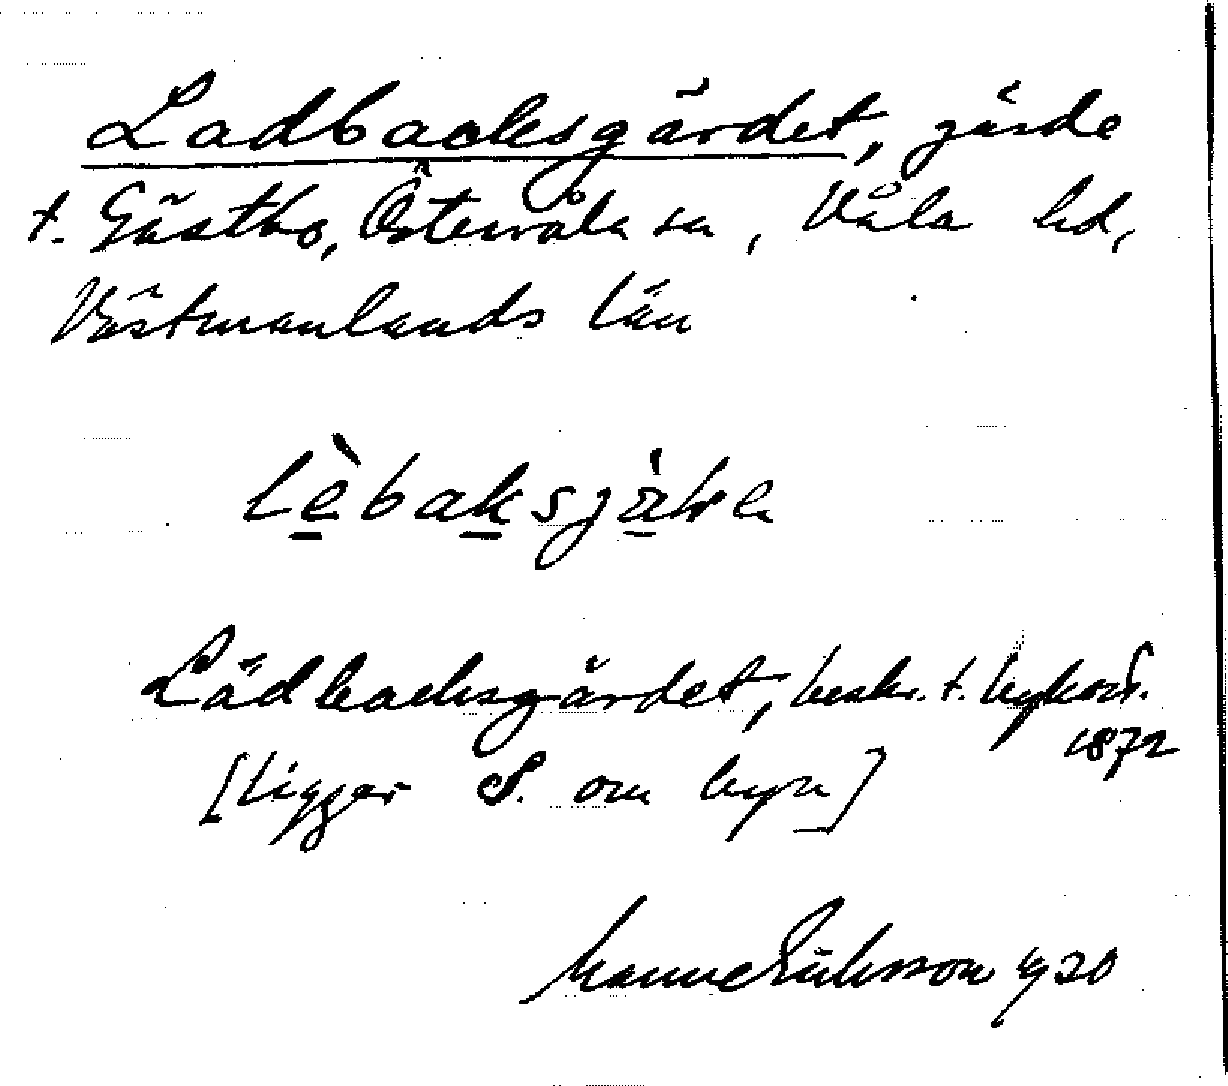 Ladbacksgärdet, gärde
t. Gästbo, Östervåla sn, Våla hd,
Västmanlands län
Lädbacksgärdet, beskr. t. bykart.
1872
[Ligger S. om byn]
Manne Eriksson 1920